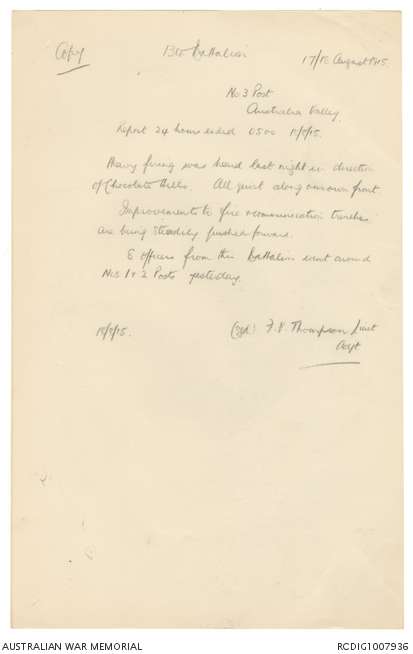 Copy 13th Battalion 17/18 August 1915.
No 3 Post
Australia Valley.
Report 24 hours ended 0500 18/8/15.
Heavy firing was heard last night in direction
of Chocolate Hills. All quiet along our own front.
Improvements to fire & communication trenches
are being steadily pushed forward.
6 officers from this battalion went around
Nos 1 & 2 Posts yesterday.
18/8/15. (sgd) F. V. Thompson Lieut
Adjt
AUSTRALIAN WAR MEMORIAL RCDIG1007936